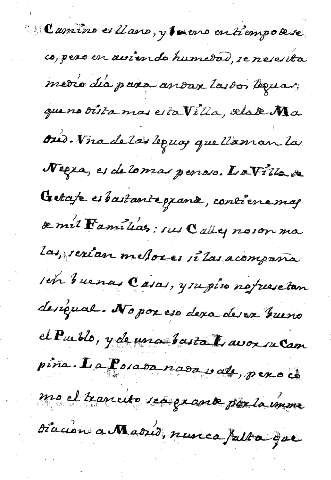 Camino es llano, y bueno en tiempo de se
co, pero en aviendo humedad, se necesita
medio dia para andar las dos leguas;
que no dista mas esta Villa, de la de Ma
drid. Una de las leguas que llaman la
Negra, es de lo mas penoso. La Villa de
Getafe es bastante grande, contiene mas
de mil Familias: sus Calles no son ma
las, serian mejores si las acompaña
sen buenas Casas, y su piso no fuese tan
desigual. No por eso dexa de ser bueno
el Pueblo, y de una basta Labor su Cam
piña. La Posada nada vale, pero co
mo el trancito sea grande por la inme
diacion a Madrid, nunca falta que